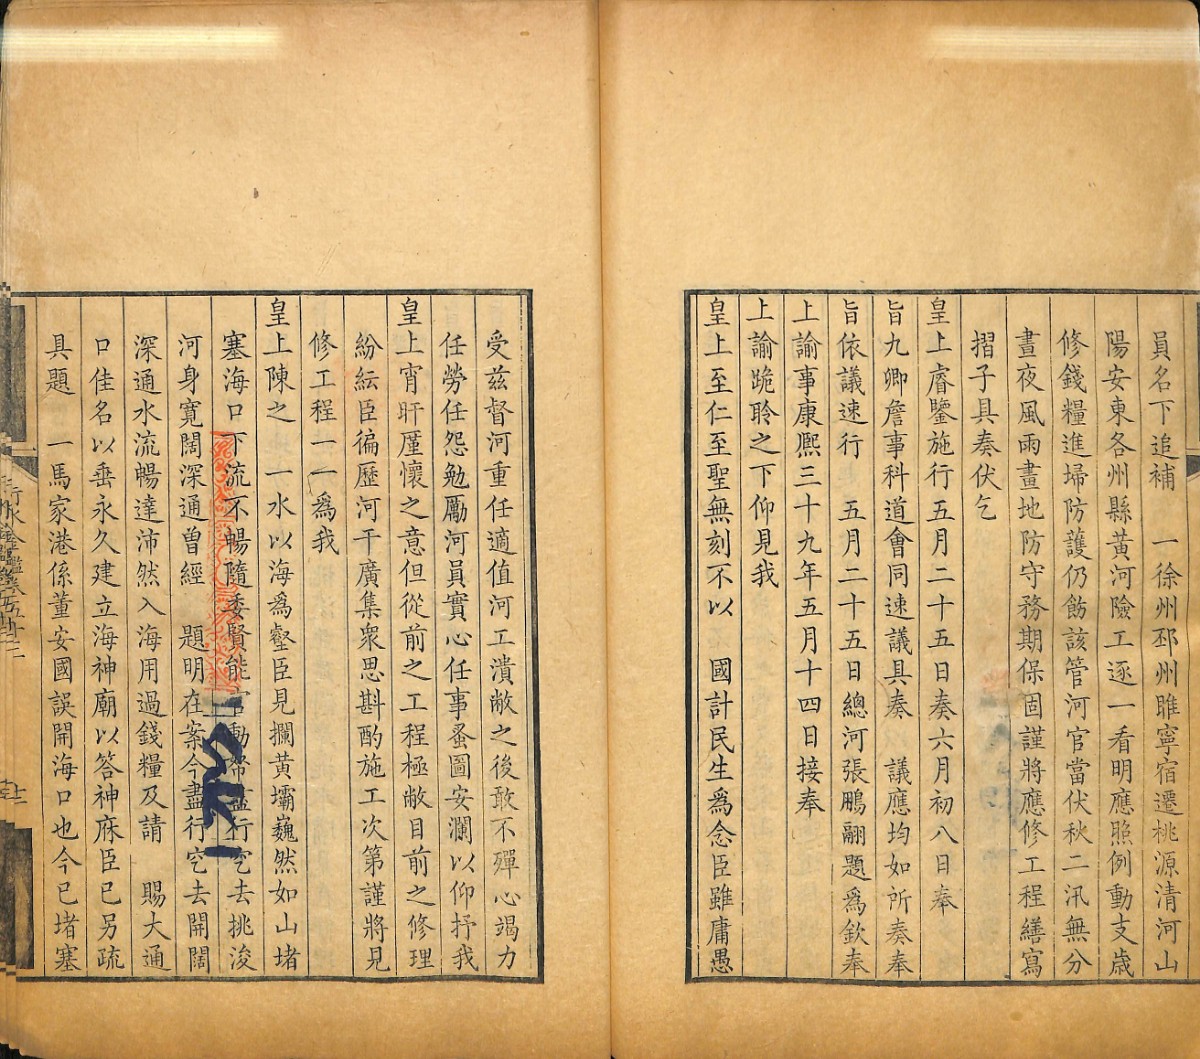 員名下追補　一徐州邳州睢寧宿遷桃源清河山
陽安東各州縣黃河險工逐一看明應照例動支歲
修錢糧進埽防護仍飭該管河官當伏秋二汛無分
晝夜風雨畫地防守務期保固謹將應修工程繕寫
摺子具奏伏乞
皇上睿鑒施行五月二十五日奏六月初八日奉
旨九卿詹事科道會同速議具奏　議應均如所奏奉
旨依議速行　五月二十五日總河張鵬翮題爲欽奉
上諭事康熙三十九年五月十四日接奉
上諭跪聆之下仰見我
皇上至仁至聖無刻不以　國計民生爲念臣雖庸愚
受茲督河重任適值河工潰敝之後敢不殫心竭力
任勞任怨勉勵河員實心任事蚤圖安瀾以仰抒我
皇上宵旰厪懷之意但從前之工程極敝目前之修理
紛紜臣徧歷河干廣集衆思斟酌施工次第謹將見
修工程一一爲我
皇上陳之　一水以海爲壑臣見攔黃壩巍然如山堵
塞海口下流不暢隨委賢能官動帑盡行穵去挑浚
河身寬闊深通曾經　題明在案今盡行穵去開闊
深通水流暢達沛然入海用過錢糧及請　賜大通
口佳名以垂永久建立海神廟以答神庥臣已另疏
具題　一馬家港係董安國誤開海口也今已堵塞
行水金鑑卷五十三